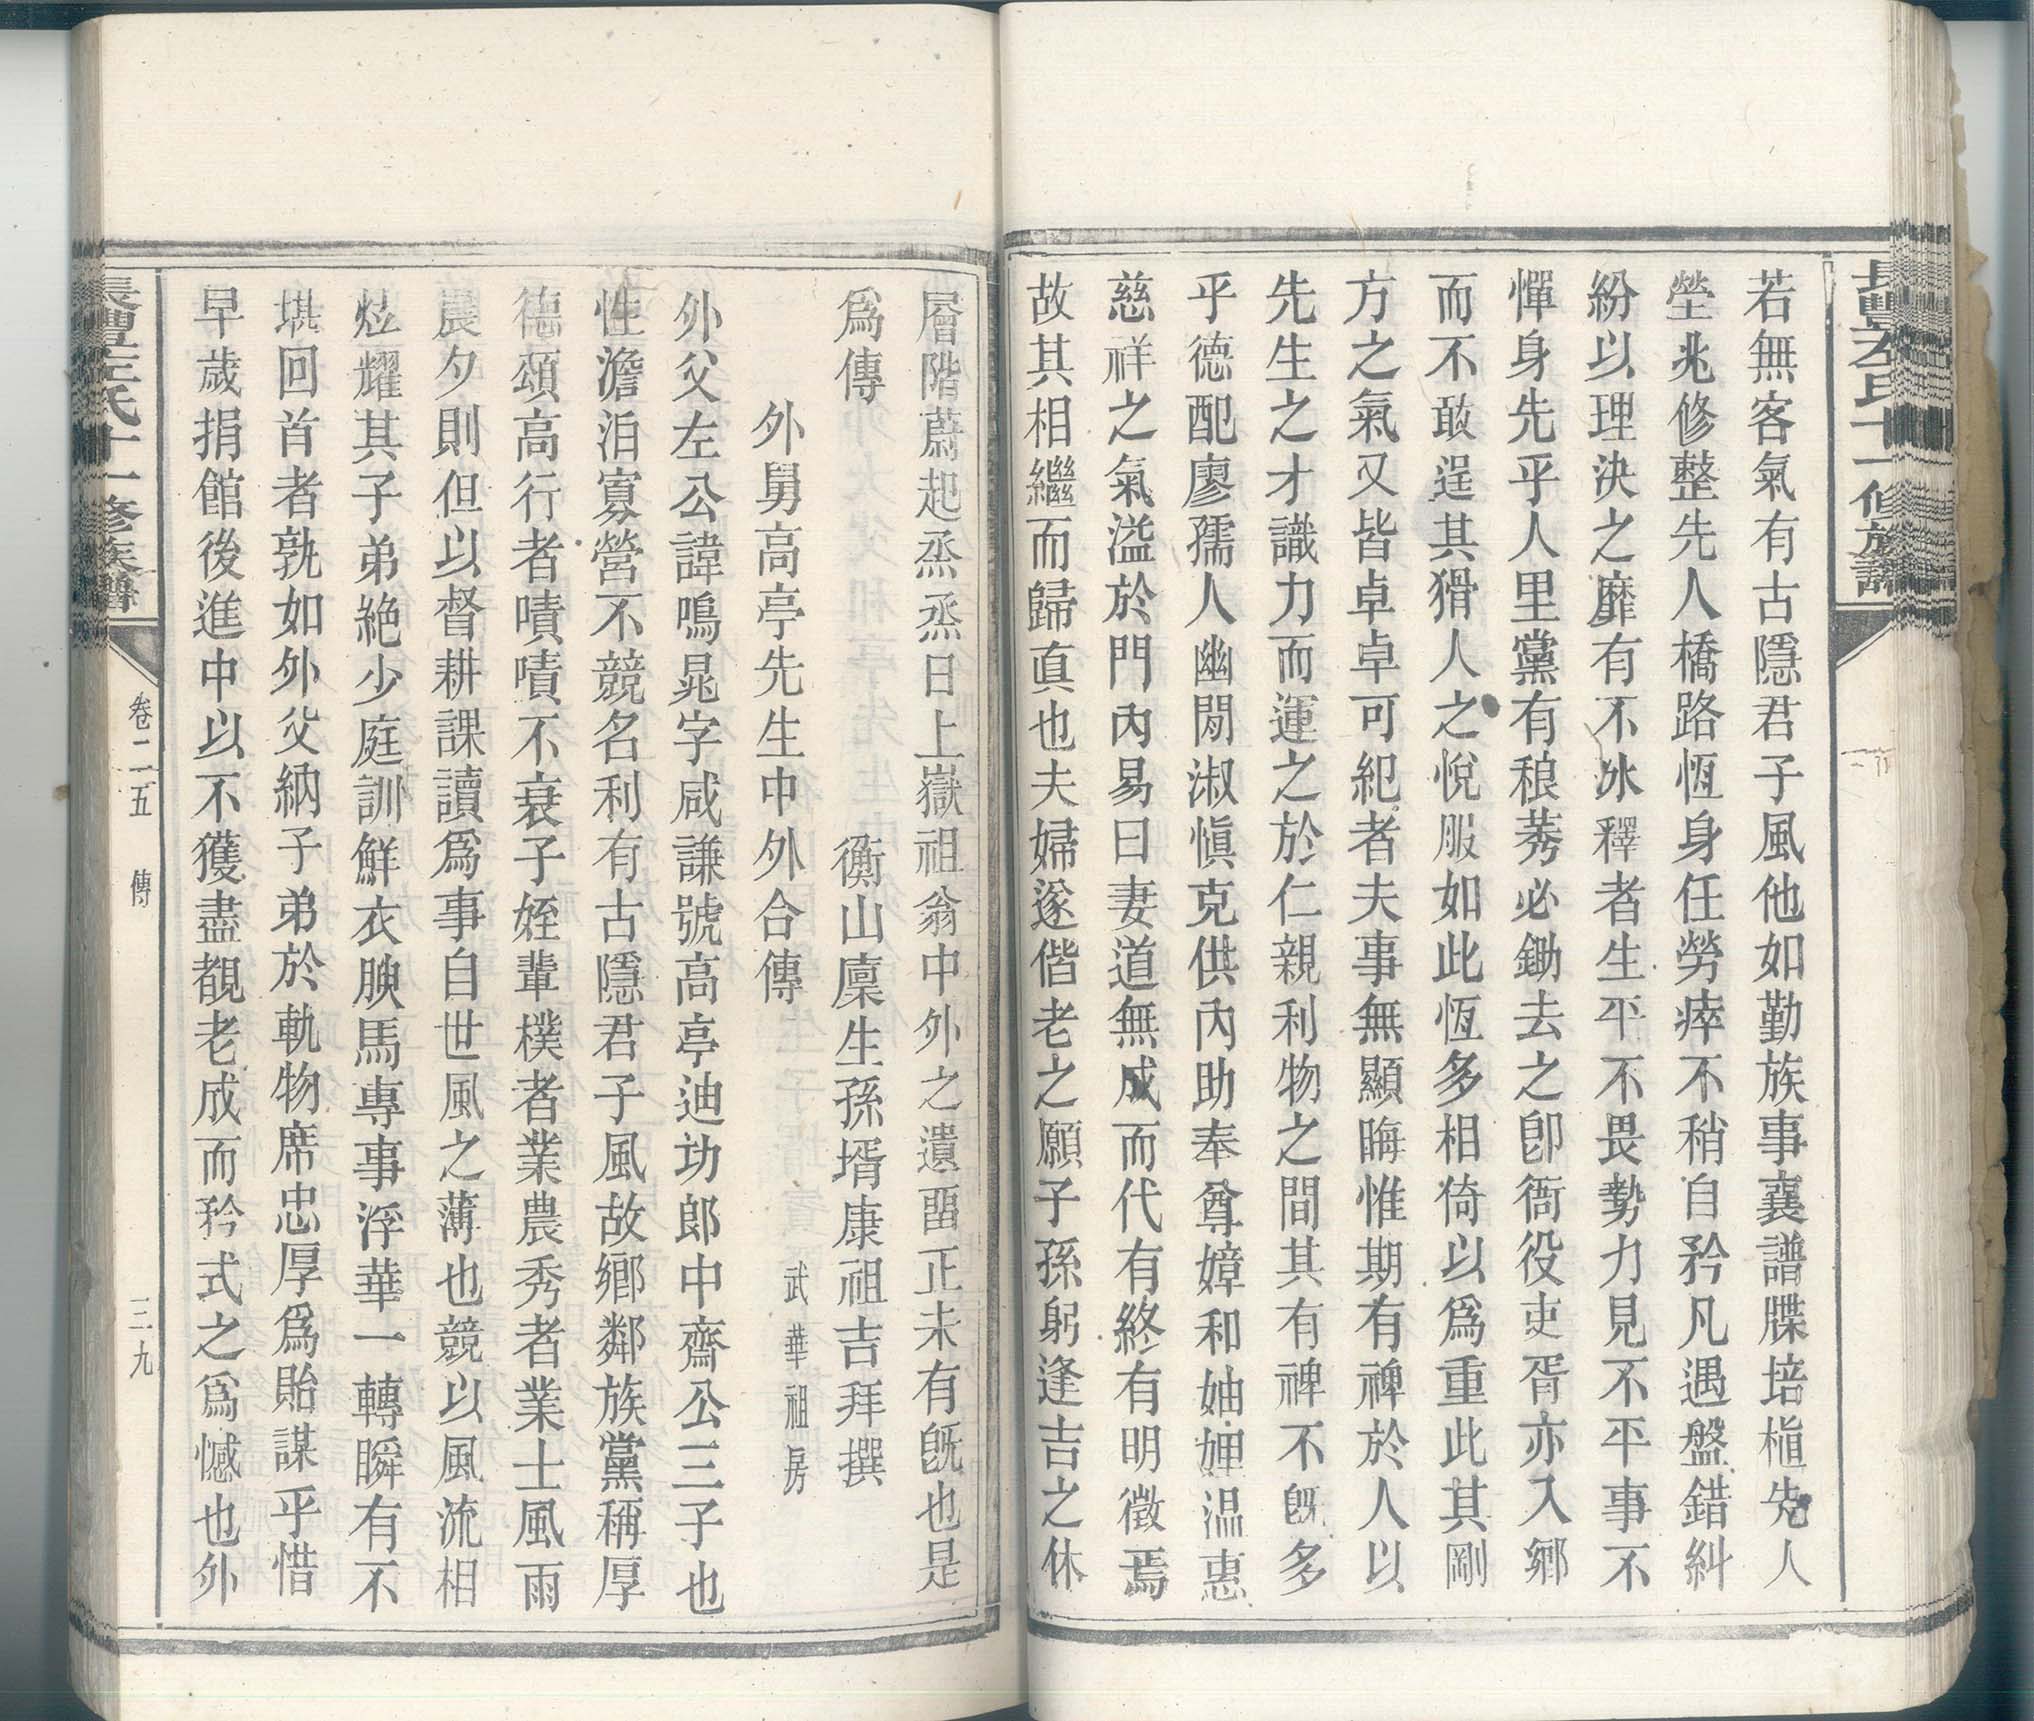 長豐左氏十一修族譜
若無客氣有古隱君子風他如勤族事襄譜牒培植先人
塋兆修整先人橋路恆身任勞瘁不稍自矜凡遇盤錯糾
紛以理決之靡有不冰釋者生平不畏勢力見不平事不
憚身先乎人里黨有稂莠必鋤去之卽衙役吏胥亦入鄉
而不敢逞其猾人之悅服如此恆多相倚以爲重此其剛
方之氣又皆卓卓可紀者夫事無顯晦惟期有裨於人以
先生之才識力而運之於仁親利物之間其有裨不旣多
乎德配廖孺人幽閒淑愼克供內助奉尊嫜和妯娌温惠
慈祥之氣溢於門內易曰妻道無成而代有終有明徵焉
故其相繼而歸真也夫婦遂偕老之願子孫躬逢吉之休
層階蔚起烝烝日上嶽祖翁中外之遺畱正未有旣也是
爲傳
衡山廩生孫壻康祖吉拜撰
外舅高亭先生中外合傳
武華祖房
外父左公諱鳴晁字咸謙號高亭迪功郎中齋公三子也
性澹泊寡營不競名利有古隱君子風故鄉鄰族黨稱厚
德頌高行者嘖嘖不衰子姪輩樸者業農秀者業士風雨
晨夕則但以督耕課讀爲事自世風之薄也競以風流相
炫耀其子弟絶少庭訓鮮衣腴馬專事浮華一轉瞬有不
堪回首者孰如外父納子弟於軌物席忠厚爲貽謀乎惜
早歲捐館後進中以不獲盡覩老成而矜式之爲憾也外
長豐左氏十一修族譜
卷二五
傳
三九